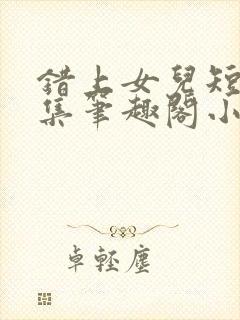 錯上女兒短
集筆趣閣小
卓輕塵